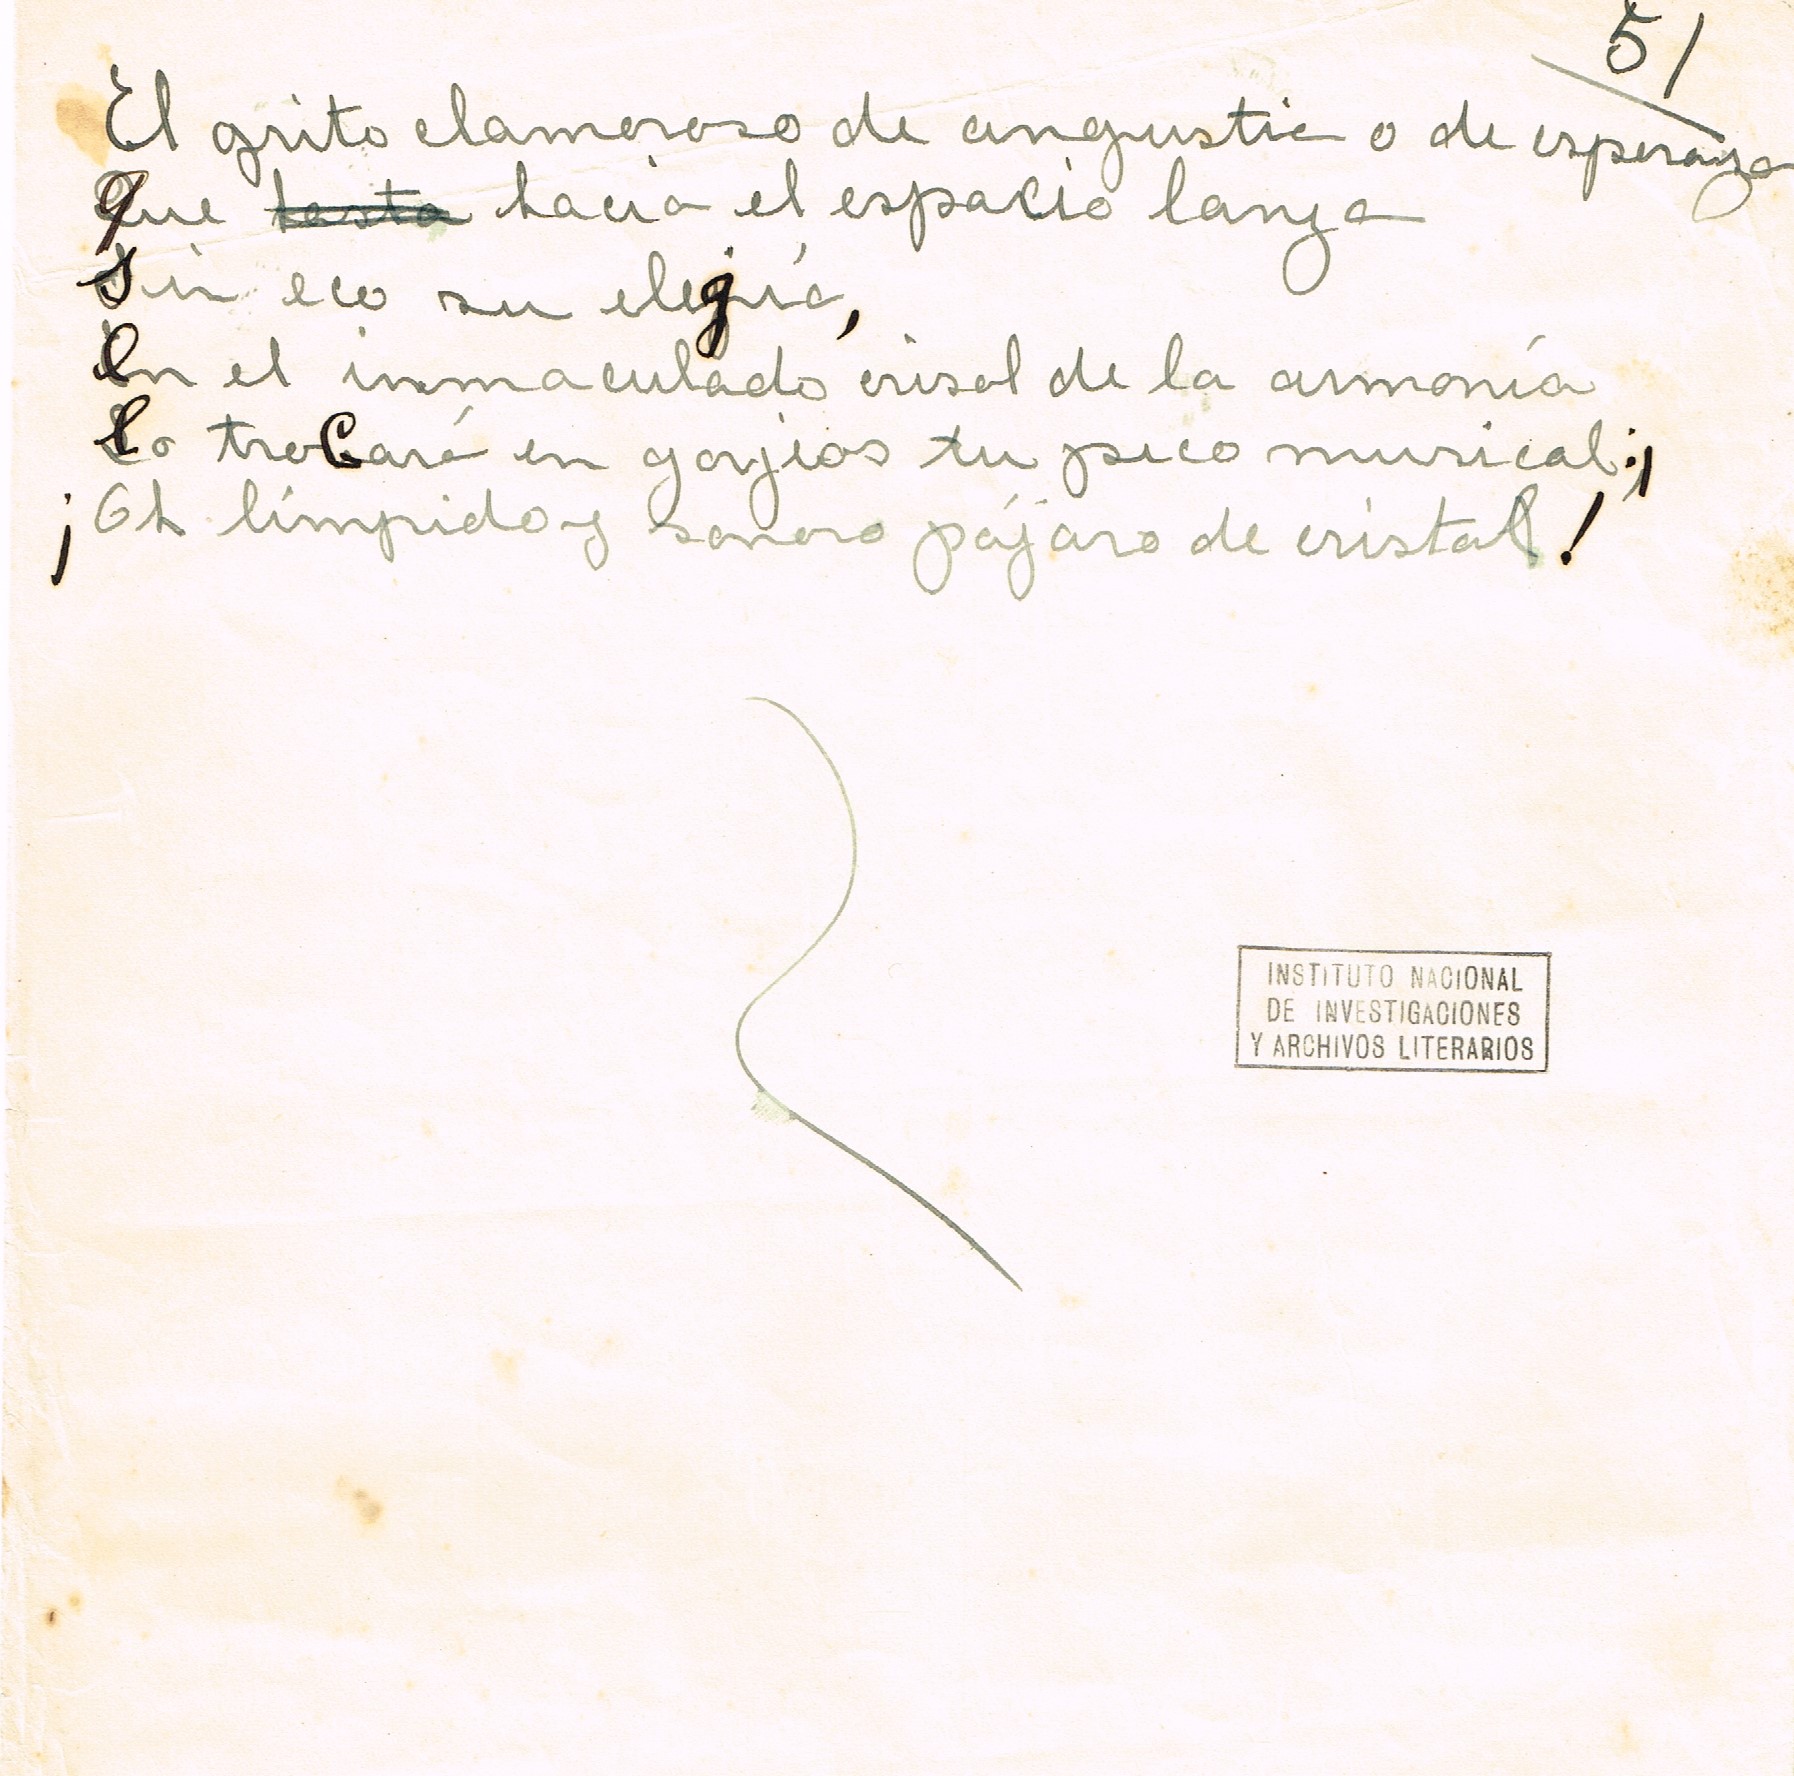 51
El grito clamoroso de angustia o de esperanza
que hasta hacia el espacio lanza
sin eco su elegía,
en el inmaculado crisol de la armonía
lo trocará en gorjeos tu pico musical;
¡Oh límpido y sonoro pájaro de cristal!
INSTITUTO NACIONAL
DE INVESTIGACIONES
Y ARCHIVOS LITERARIOS